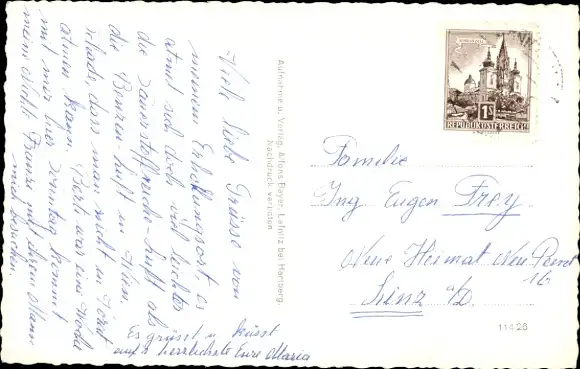 Viele liebe Grüsse von
meinem Erholungsort es
atmet sich doch viel leichter
die Sauerstoffreiche-Luft als
die Benzin-Luft in Wien.
schade, dass man nicht in
atmen kann. war eine Woche
mit mir hier Sonntag kommt
meine Nichte mit ihrem Mann
mich besuchen.
Es grüsst u. küsst
euch herzlichst Eure Maria
Aufnahme u. Verlag Alfons Bayer, Lafnitz bei Hartberg.
Nachdruck verboten
1 S
REPUBLIK ÖSTERREICH
Familie
Ing Eugen Frey
Neue Heimat
16
Linz a/D.
11426